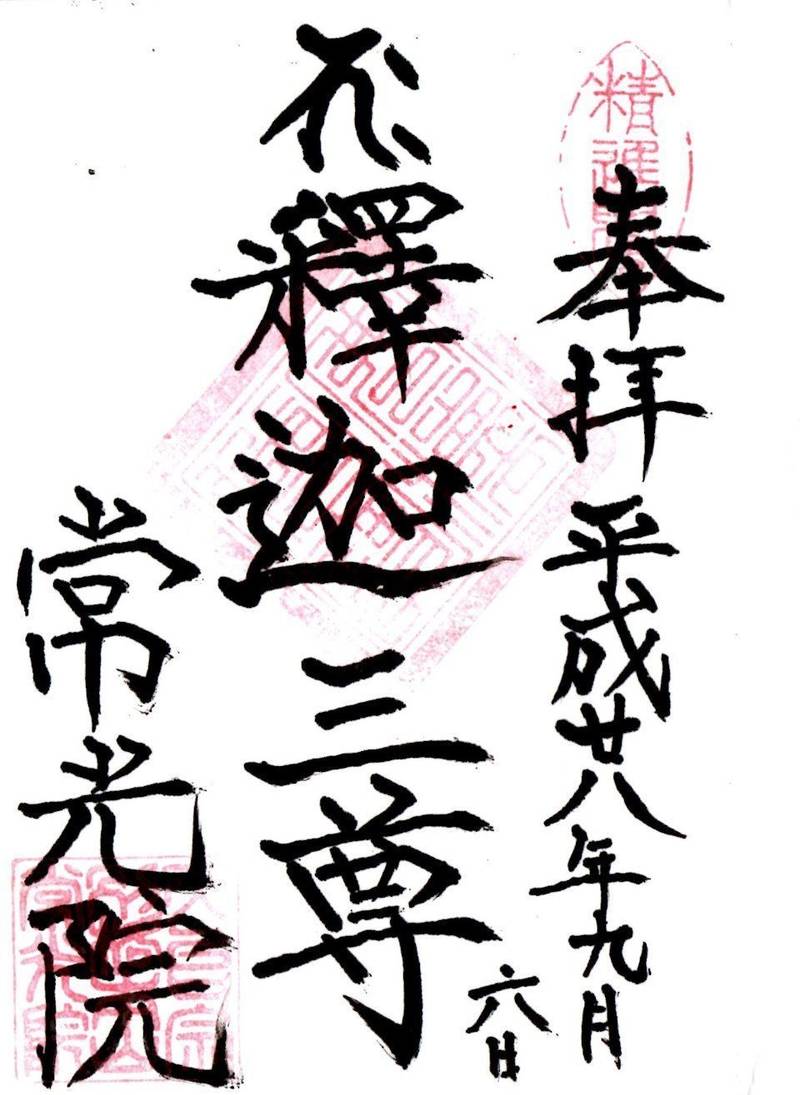 精進
奉拝 平成廿八年九月
六日
釋迦三尊
常光院